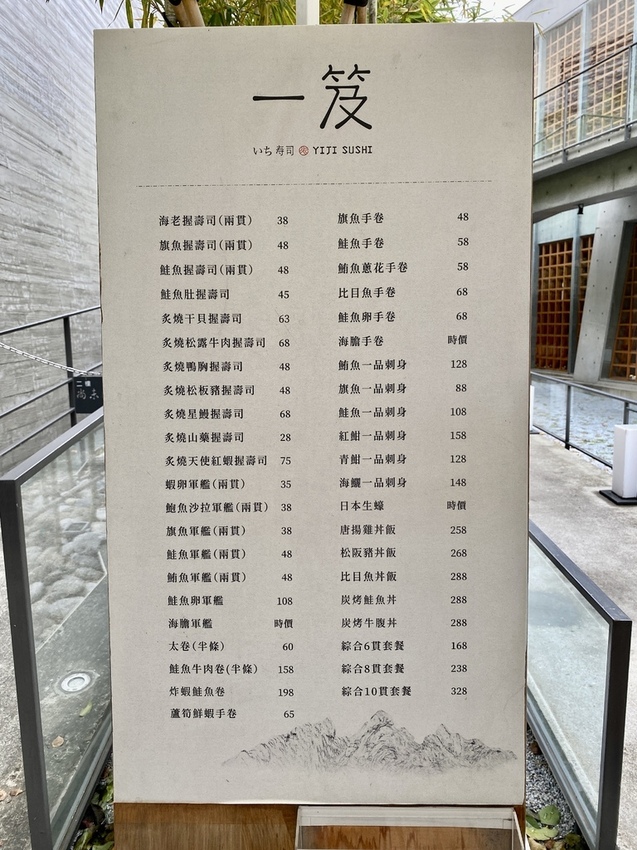 一笈
いち寿司 YIJI SUSHI
海老握壽司(兩貫) 38
旗魚握壽司(兩貫) 48
鮭魚握壽司(兩貫) 48
鮭魚肚握壽司 45
炙燒干貝握壽司 63
炙燒松露牛肉握壽司 68
炙燒鴨胸握壽司 48
炙燒松板豬握壽司 48
炙燒星鰻握壽司 68
炙燒山藥握壽司 28
炙燒天使紅蝦握壽司 75
蝦卵軍艦(兩貫) 35
鮑魚沙拉軍艦(兩貫) 38
旗魚軍艦(兩貫) 38
鮭魚軍艦(兩貫) 48
鮪魚軍艦(兩貫) 48
鮭魚卵軍艦 108
海膽軍艦 時價
太卷(半條) 60
鮭魚牛肉卷(半條) 158
炸蝦鮭魚卷 198
蘆筍鮮蝦手卷 65
旗魚手卷 48
鮭魚手卷 58
鮪魚蔥花手卷 58
比目魚手卷 68
鮭魚卵手卷 68
海膽手卷 時價
鮪魚一品刺身 128
旗魚一品刺身 88
鮭魚一品刺身 108
紅魽一品刺身 158
青魽一品刺身 128
海鱺一品刺身 148
日本生蠔 時價
唐揚雞丼飯 258
松阪豬丼飯 268
比目魚丼飯 288
炭烤鮭魚丼 288
炭烤牛腹丼 288
綜合6貫套餐 168
綜合8貫套餐 238
綜合10貫套餐 328
二樓